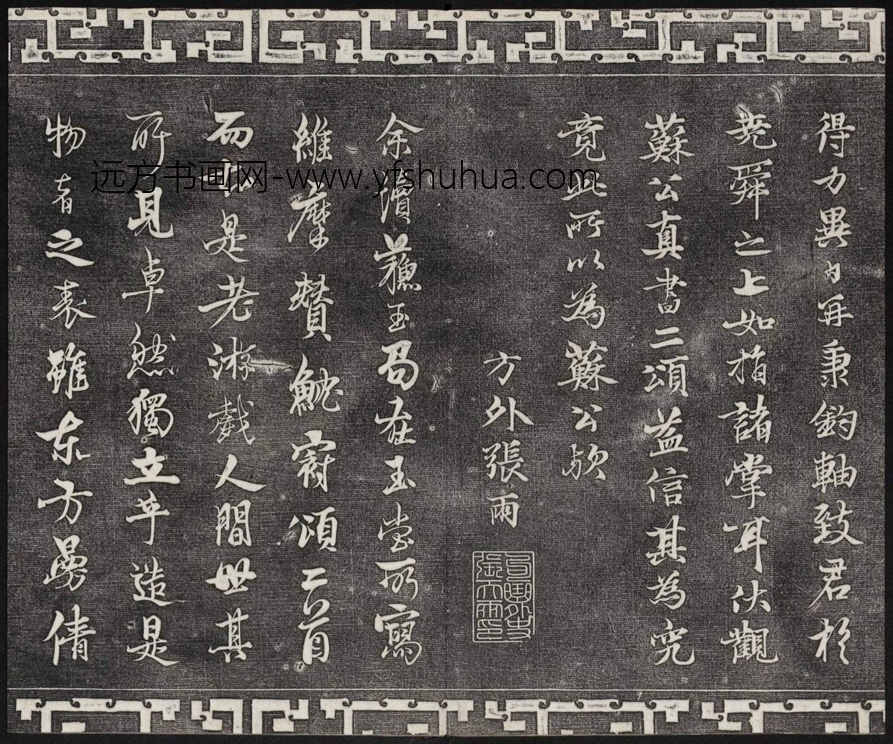 得力異日再秉鈞軸致君於
堯舜之上如指諸掌耳伏觀
蘇公真書二頌益信其為究
竟此所以為蘇公歟
方外張雨
余讀蘇玉局在玉堂所寫
維摩贊魚枕冠頌二首
而 是老游戲人間世其
所見卓然獨立乎造是
物者之表雖東方曼倩
远方书画网-www.yfshuhua.com